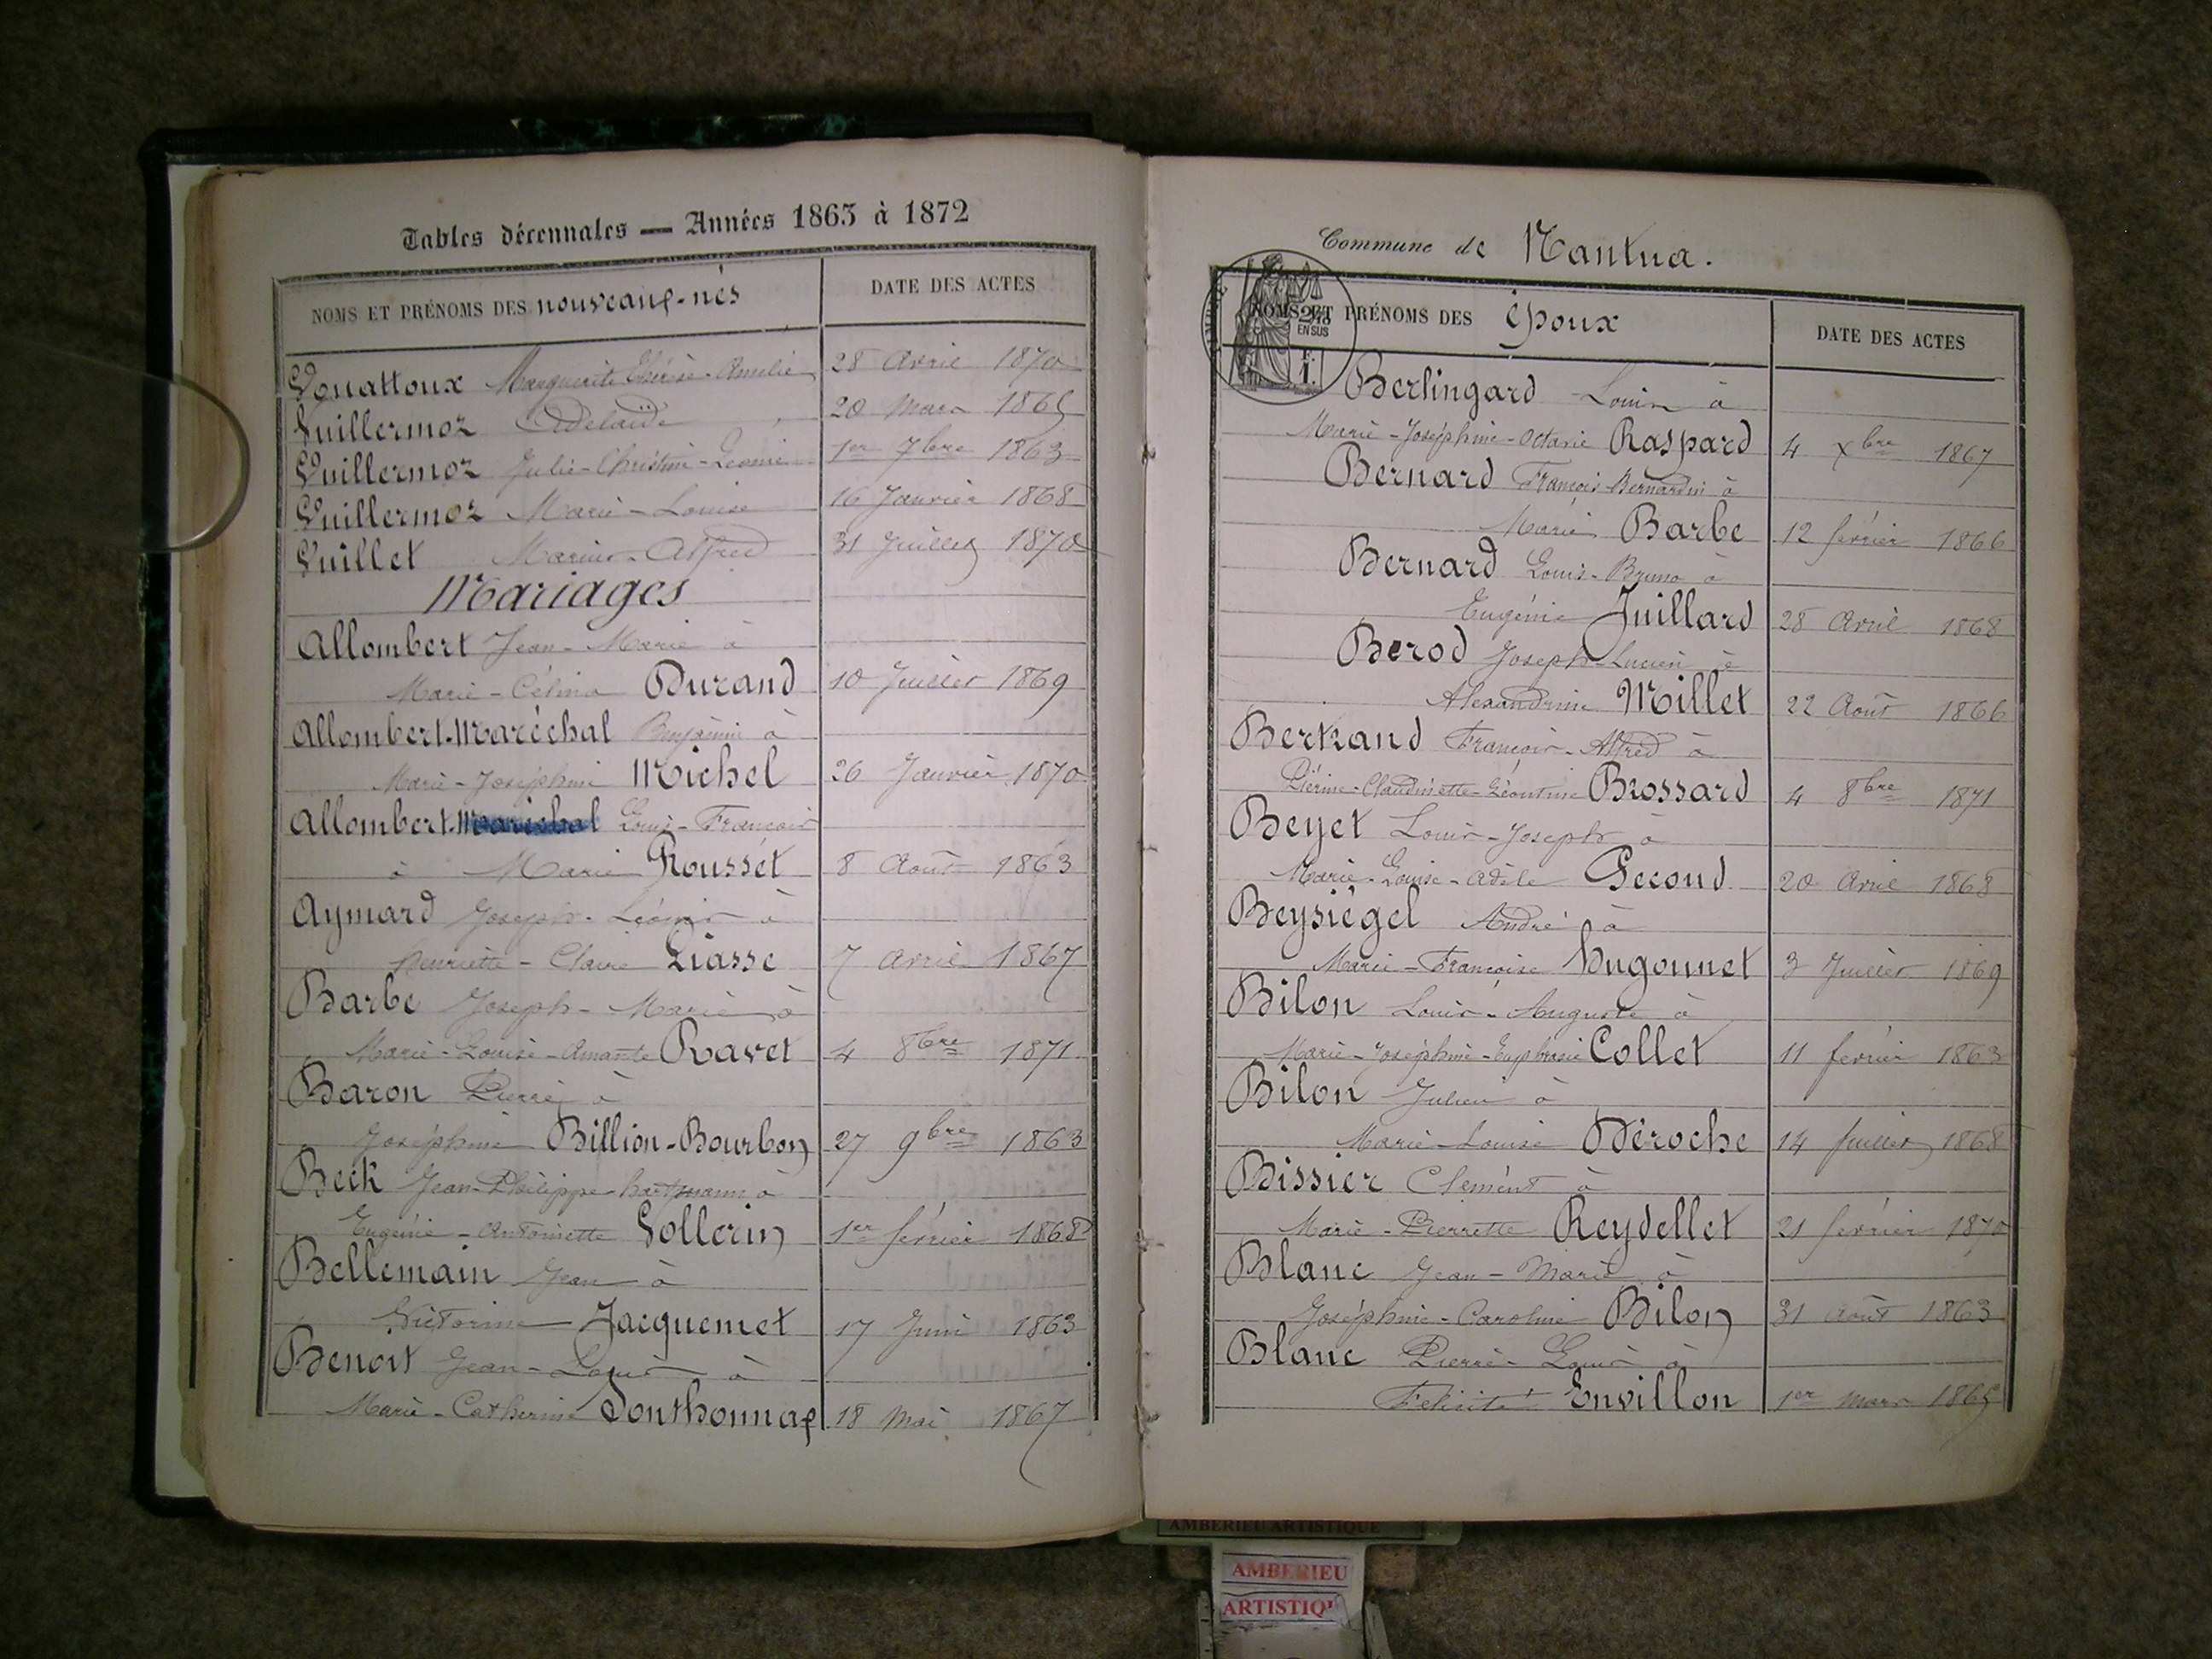 Tables décennales — Années 1863 à 1872
NOMS ET PRÉNOMS DES nouveaux-nés DATE DES ACTES
Vouattoux Marguerite Thérèse-Amélie 28 Avril 1870
Vuillermoz Adelaïde 20 Mars 1865
Vuillermoz Julie-Christine-Léonie 1er 7bre 1863
Vuillermoz Marie-Louise 16 Janvier 1868
Vuillet Marius-Alfred 31 Juillet 1870
Mariages
Allombert Jean-Marie à
Marie-Célina Durand 10 Juillet 1869
Allombert-Maréchal Benjamin à
Marie-Joséphine Michel 26 Janvier 1870
Allombert-Maréchal Louis-François
à Marie Rousset 8 Août 1863
Aymard Joseph-Léonir à
henriette-Claire Liasse 7 avril 1867
Barbe Joseph-Marie à
Marie-Louise-Amante Ravet 4 8bre 1871
Baron Pierre à
Joséphine Billion-Bourbon 27 9bre 1863
Beck Jean-Philippe-hartmann à
Eugénie-Antoinette Vollerin 1er février 1868
Bellemain Jean à
Victorine Jacquemet 17 Juin 1863
Benoit Jean-Louis à
Marie-Catherine Ponthonnax 18 Mai 1867
Commune de Nantua.
NOMS ET PRÉNOMS DES époux DATE DES ACTES
2/10 EN SUS
1 F.
Berlingard Louis à
Marie-Joséphine-Octavie Raspard 4 xbre 1867
Bernard François-Bernardin à
Marie Barbe 12 février 1866
Bernard Louis-Bruno à
Eugénie Juillard 28 Avril 1868
Berod Joseph-Lucien à
Alexandrine Millet 22 Août 1866
Bertrand François-Alfred à
Piérine-Claudinette-Léontine Brossard 4 8bre 1871
Beyet Louis-Joseph à
Marie-Louise-adèle Second 20 Avril 1868
Beysiégel André à
Marie-Françoise hugonnet 3 Juillet 1869
Bilon Louis-Auguste à
Marie-Joséphine-Euphrasie Collet 11 fevrier 1863
Bilon Julien à
Marie-Louise Déroche 14 Juillet 1868
Bissier Clement à
Marie-Pierrette Reydellet 21 février 1870
Blanc Jean-Marie à
Joséphine-Caroline Bilon 31 août 1863
Blanc Pierre-Louis à
Felicité Envillon 1er mars 1865
AMBERIEU ARTISTIQUE
AMBERIEU
ARTISTIQ